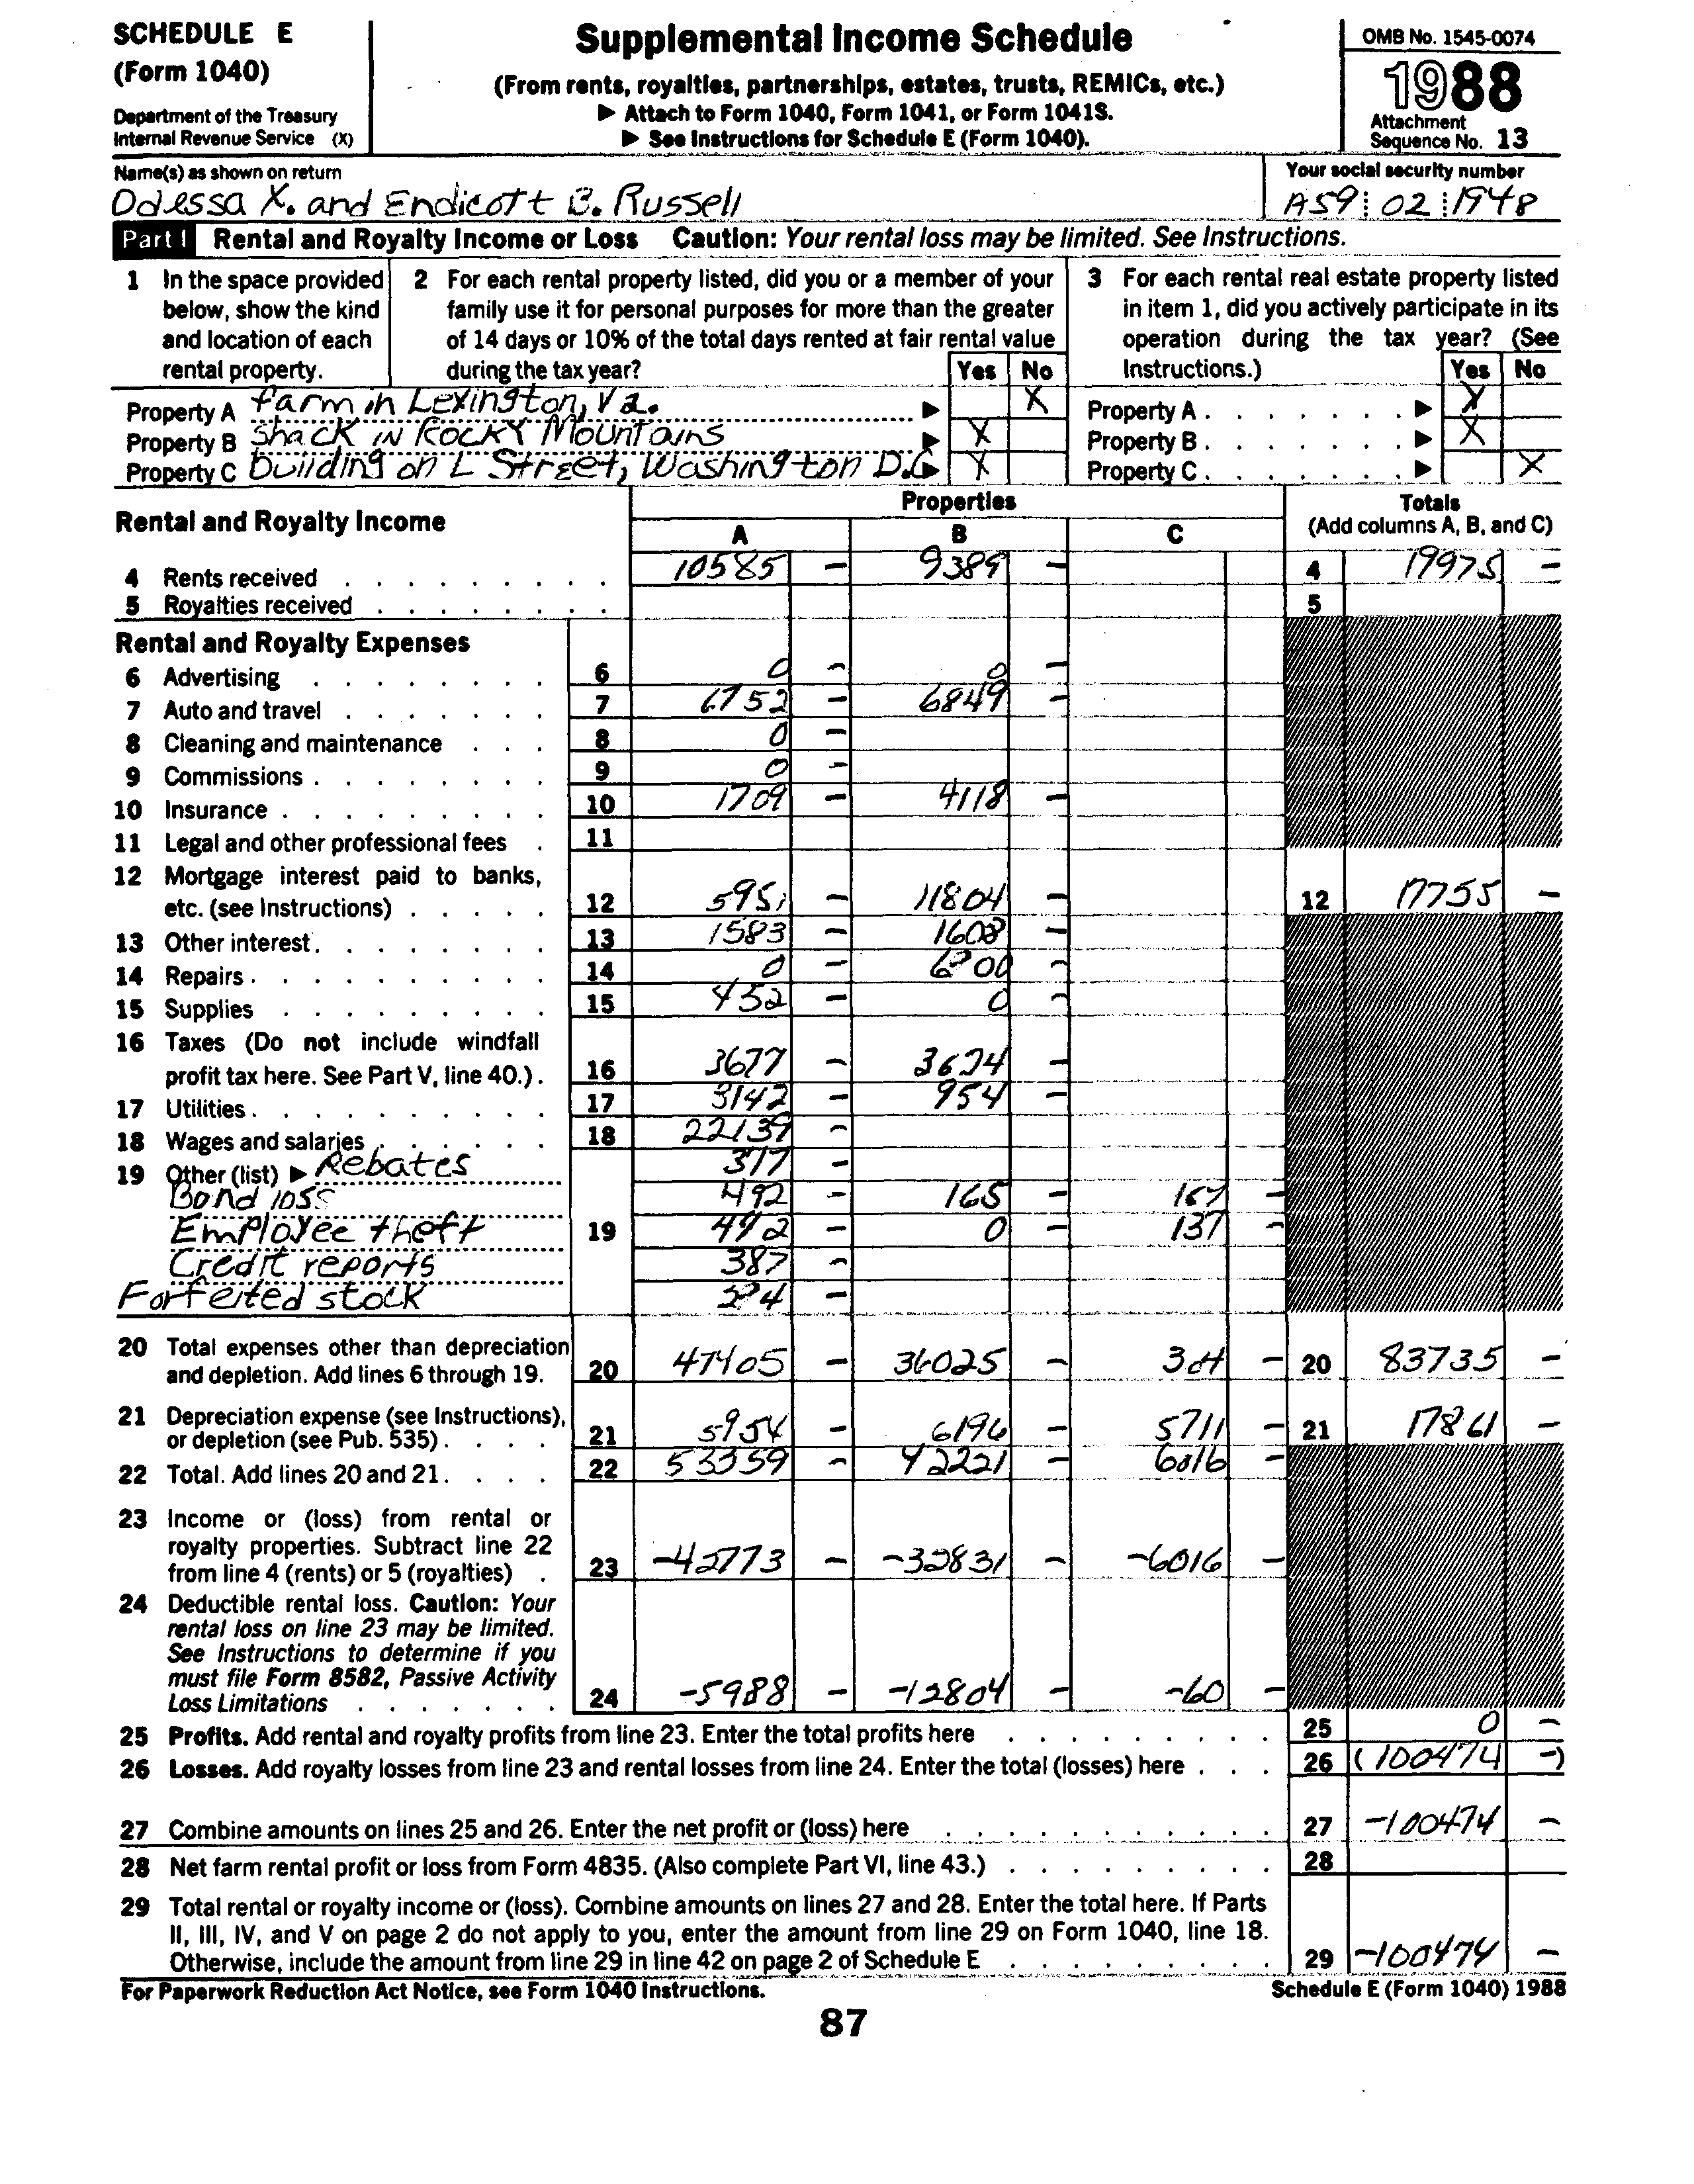 SCHEDULE E
(Form 1040)
Department of the Treasury
Internal Revenue Service (X)
Supplemental Income Schedule
(From rents, royalties, partnerships, estates, trusts, REMICs, etc.)
▶ Attach to Form 1040, Form 1041, or Form 1041S.
▶ See Instructions for Schedule E (Form 1040).
OMB No. 1545-0074
1988
Attachment
Sequence No. 13
Name(s) as shown on return
Odessa X. and Endicott B. Russell
Your social security number
A59 02 1948
Part I Rental and Royalty Income or Loss Caution: Your rental loss may be limited. See Instructions.
1 In the space provided below, show the kind and location of each rental property.
2 For each rental property listed, did you or a member of your family use it for personal purposes for more than the greater of 14 days or 10% of the total days rented at fair rental value during the tax year?
Yes No
3 For each rental real estate property listed in item 1, did you actively participate in its operation during the tax year? (See Instructions.)
Yes No
Property A farm in Lexington, Va. ▶ X Property A ▶ X
Property B Shack in Rocky Mountains ▶ X Property B ▶ X
Property C building on L Street, Washington D.C ▶ X Property C ▶ X
Rental and Royalty Income
Properties
A B C
Totals
(Add columns A, B, and C)
4 Rents received 10585 – 9389 – 4 19975 –
5 Royalties received 5
Rental and Royalty Expenses
6 Advertising 6 0 – 0 –
7 Auto and travel 7 6752 – 6849 –
8 Cleaning and maintenance 8 0 –
9 Commissions 9 0 –
10 Insurance 10 1709 – 4118 –
11 Legal and other professional fees 11
12 Mortgage interest paid to banks,
etc. (see Instructions) 12 5951 – 11804 – 12 17755 –
13 Other interest 13 1583 – 1608 –
14 Repairs 14 0 –
15 Supplies 15 452 – 0 –
16 Taxes (Do not include windfall
profit tax here. See Part V, line 40.) 16 3677 – 3674 –
17 Utilities 17 3142 – 954 –
18 Wages and salaries 18 22139 –
19 Other (list) ▶ Rebates 317 –
Bond loss 492 – 165 – 167 –
Employee theft 19 492 – 0 – 137 –
Credit reports 387 –
Forfeited stock –
20 Total expenses other than depreciation
and depletion. Add lines 6 through 19. 20 47405 – 36025 – 304 – 20 83735 –
21 Depreciation expense (see Instructions),
or depletion (see Pub. 535) 21 5954 – 6196 – 5711 – 21 17861 –
22 Total. Add lines 20 and 21 22 53359 – 42221 – 6016 –
23 Income or (loss) from rental or
royalty properties. Subtract line 22
from line 4 (rents) or 5 (royalties) 23 -42773 – -32831 – -6016 –
24 Deductible rental loss. Caution: Your
rental loss on line 23 may be limited.
See Instructions to determine if you
must file Form 8582, Passive Activity
Loss Limitations 24 -5988 – -12804 – -60 –
25 Profits. Add rental and royalty profits from line 23. Enter the total profits here 25 0 –
26 Losses. Add royalty losses from line 23 and rental losses from line 24. Enter the total (losses) here 26 (100474 –)
27 Combine amounts on lines 25 and 26. Enter the net profit or (loss) here 27 -100474 –
28 Net farm rental profit or loss from Form 4835. (Also complete Part VI, line 43.) 28
29 Total rental or royalty income or (loss). Combine amounts on lines 27 and 28. Enter the total here. If Parts
II, III, IV, and V on page 2 do not apply to you, enter the amount from line 29 on Form 1040, line 18.
Otherwise, include the amount from line 29 in line 42 on page 2 of Schedule E 29 -100474 –
For Paperwork Reduction Act Notice, see Form 1040 Instructions. Schedule E (Form 1040) 1988
87